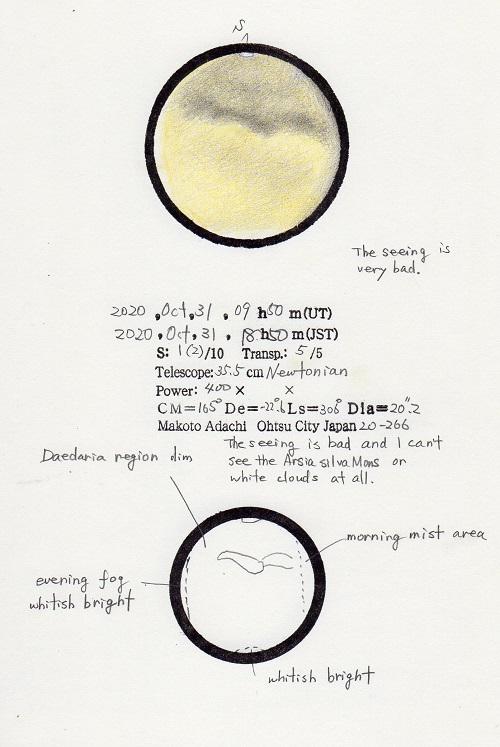 S
The seeing is
very bad.
2020 , Oct, 31 , 09 h50 m(UT)
2020 , Oct, 31 , 18 h50 m(JST)
S: 1(2)/10 Transp.: 5 /5
Telescope: 35.5 cm Newtonian
Power: 400 × ×
CM=165° De=-22°.6 Ls=306° Dia=20".2
Makoto Adachi Ohtsu City Japan 20-266
The seeing is bad and I can't
see the Arsia silva Mons or
white clouds at all.
Daedaria region dim
morning mist area
evening fog
whitish bright
whitish bright